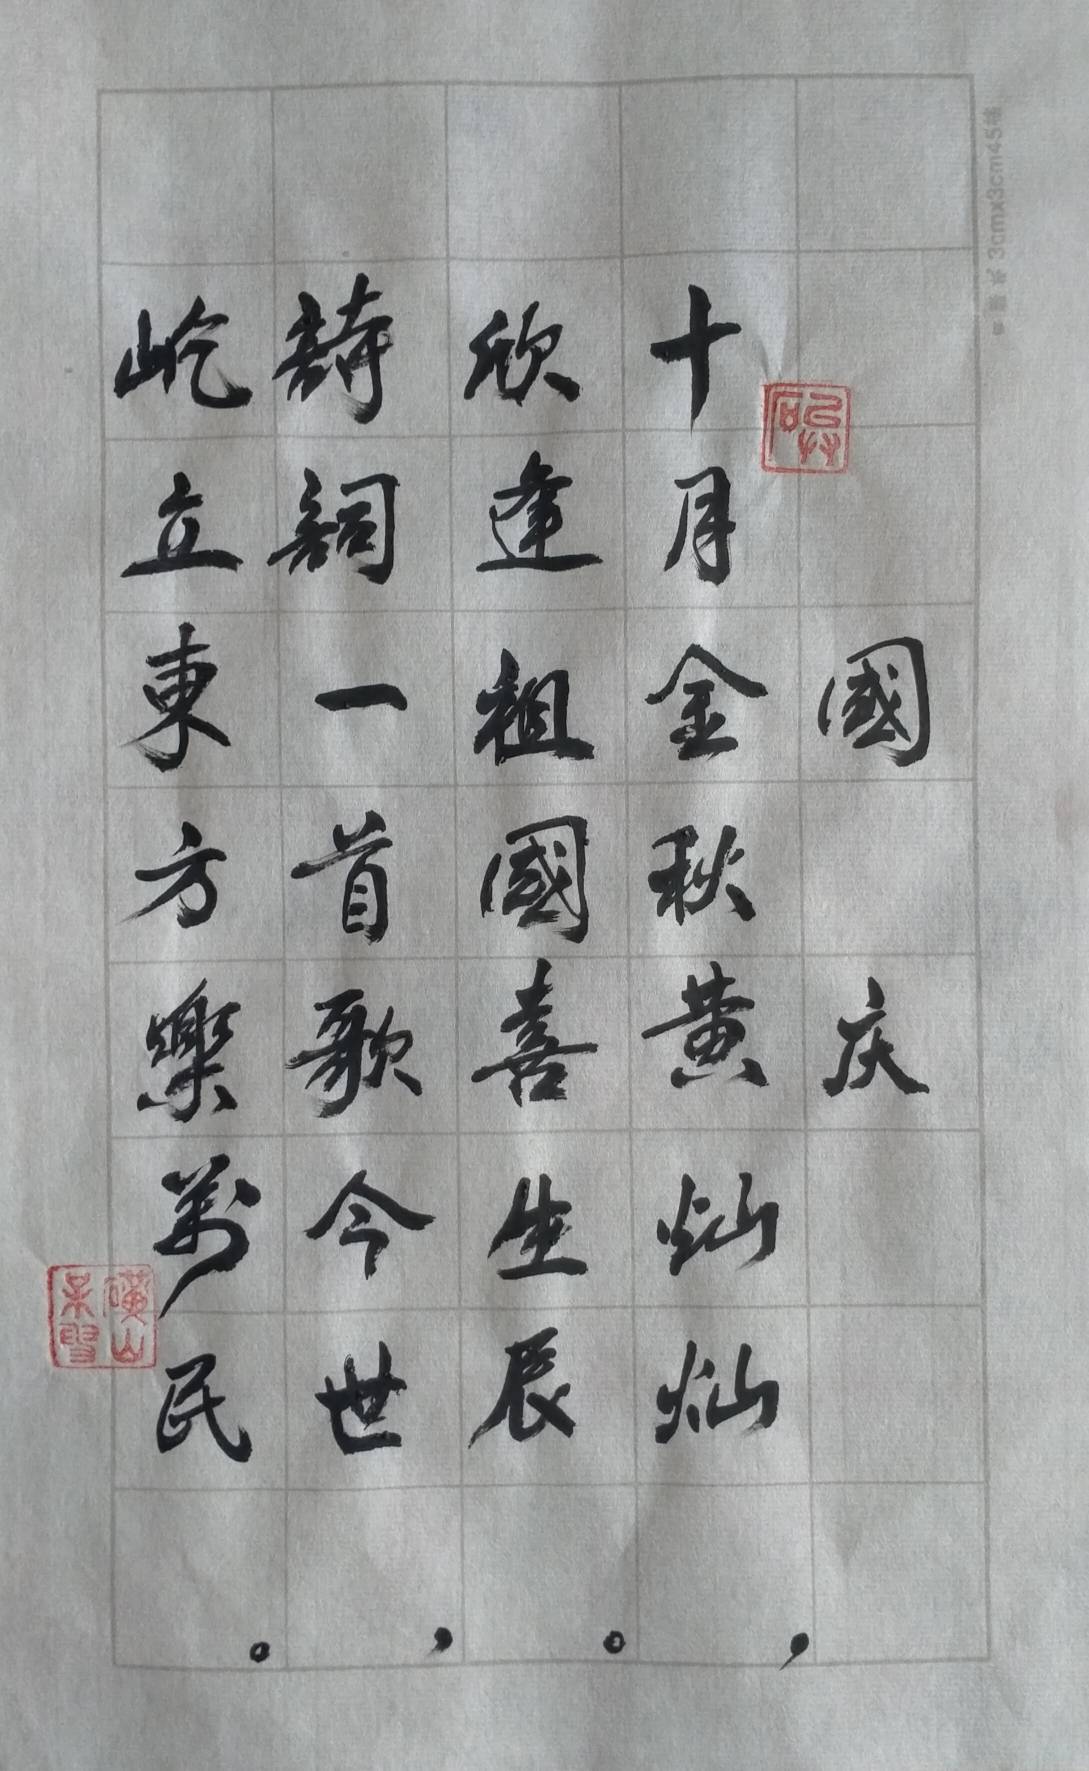 國庆
十月金秋黄灿灿，
欣逢祖國喜生辰。
詩詞一首歌今世，
屹立東方樂萬民。
3cmx3cm45格